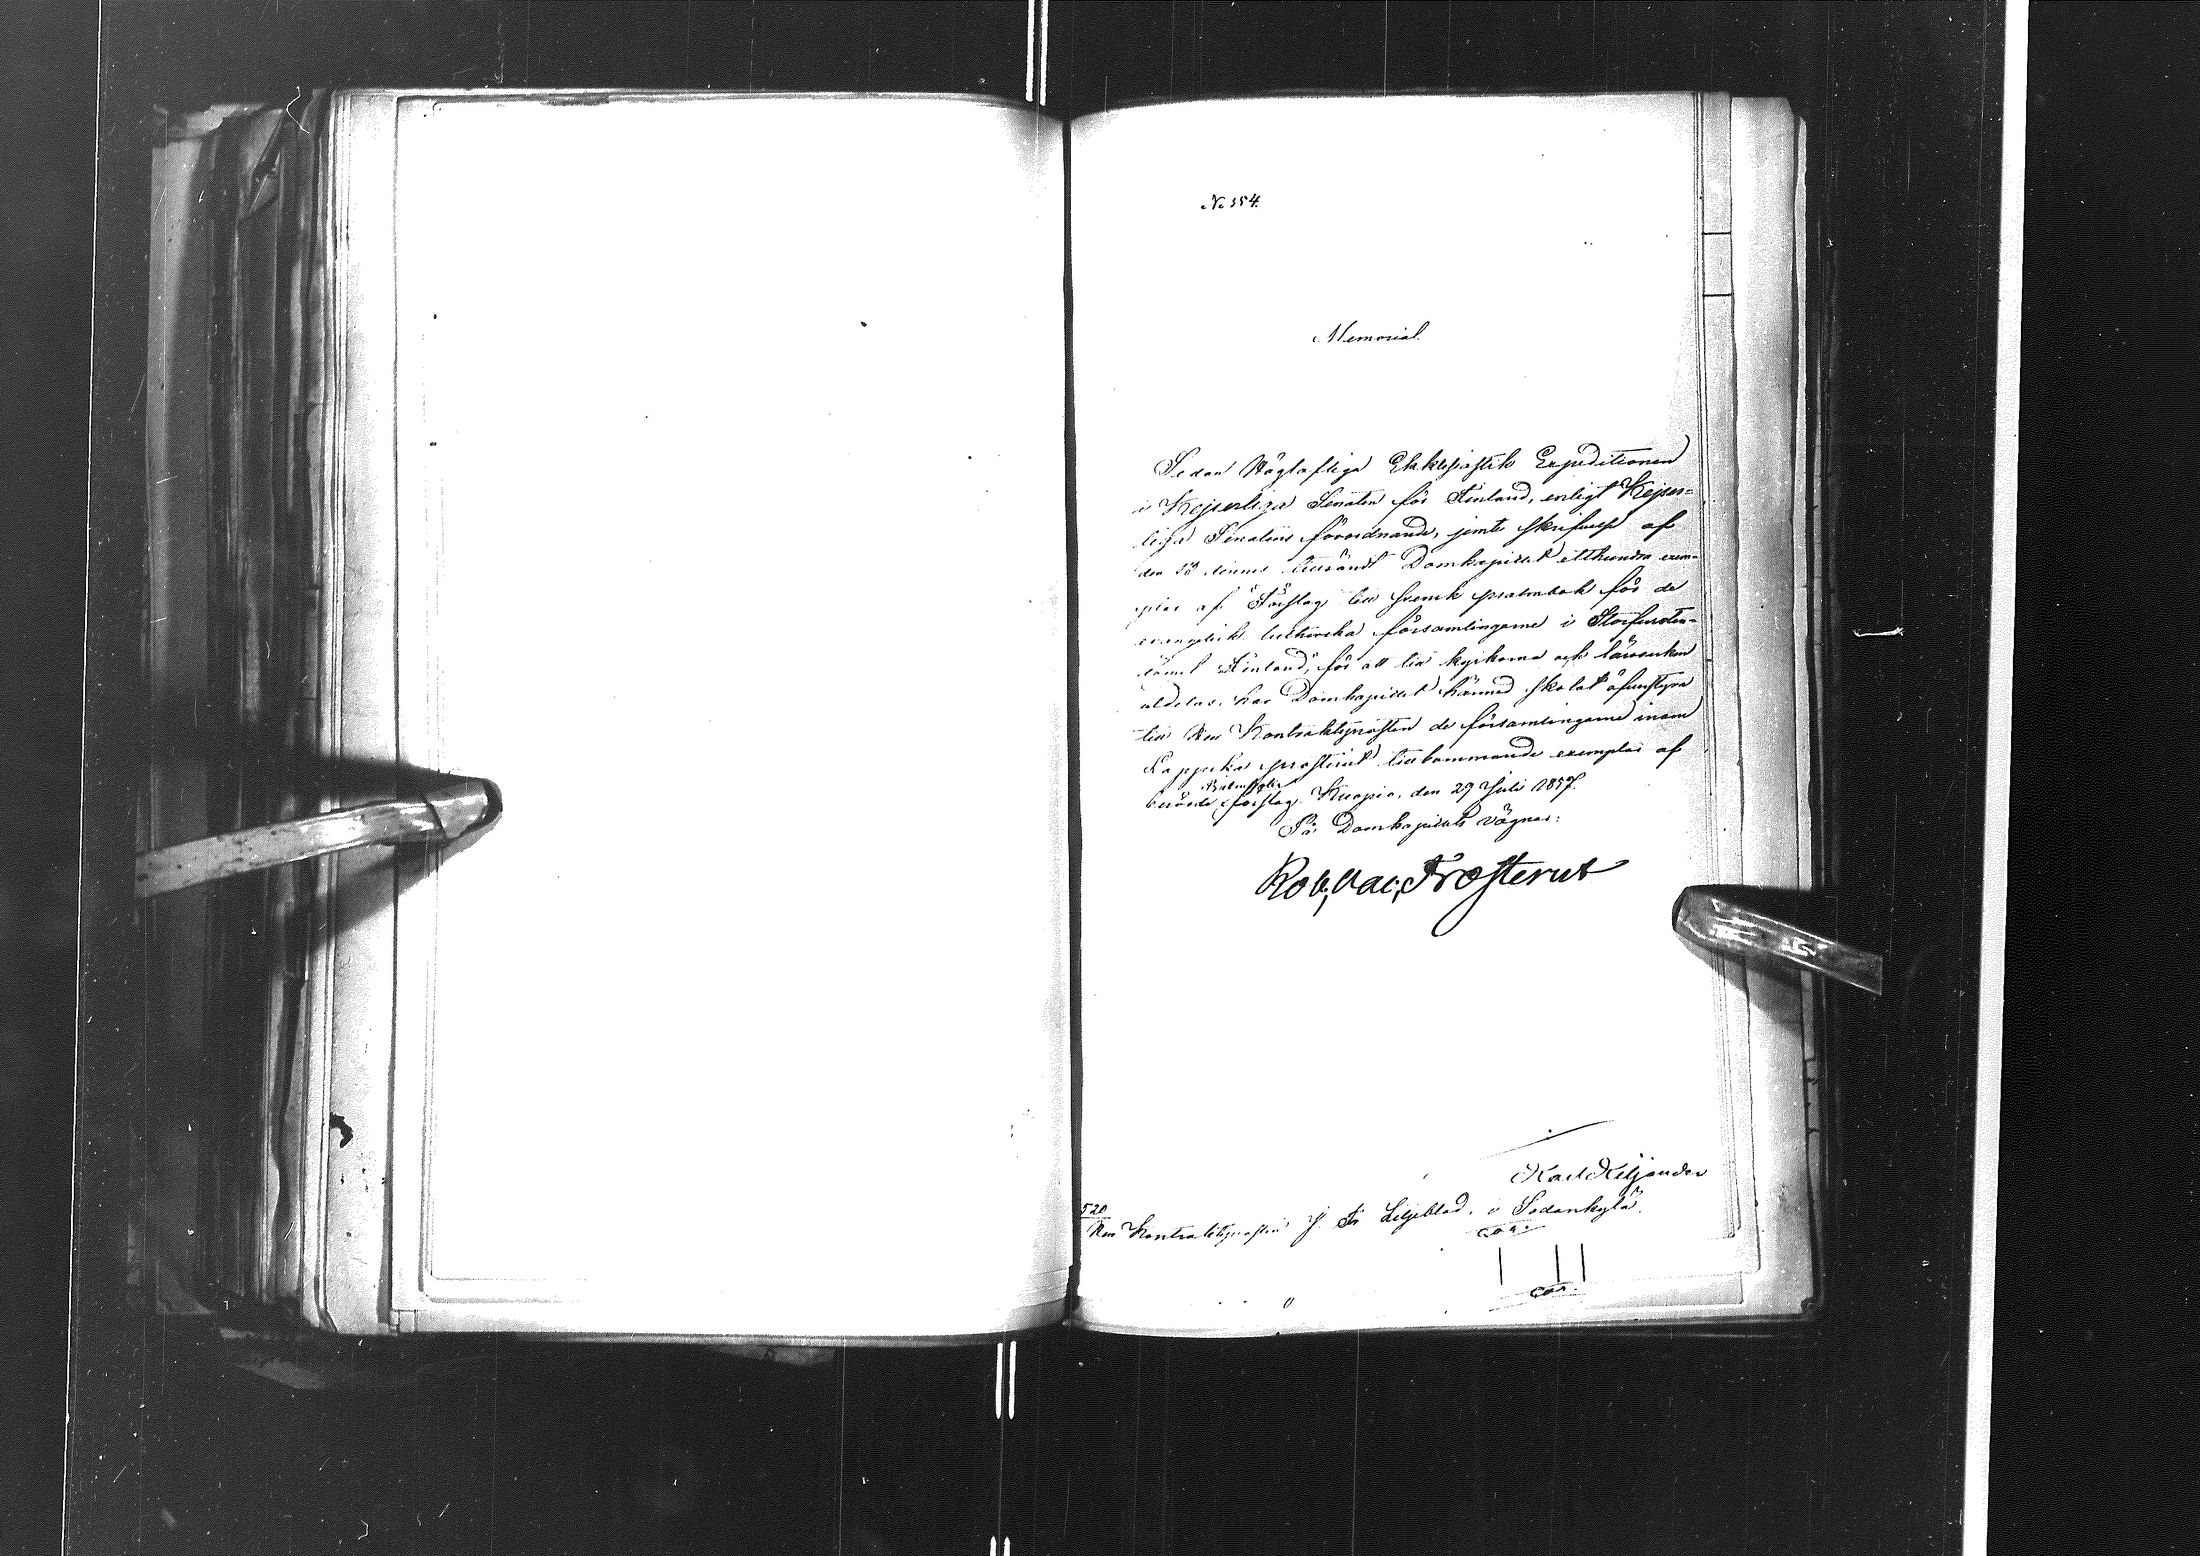 № 354.
Memorial.
Sedan Höglofliga Ekklesiastik Expeditionen
i Kejserliga Senaten för Finland, enligt Kejser=
liga Senatens förordnande, jemte skrifvelse af
den dennes tillsändt Domkapitlet etthundra exem=
plar af "Förslag till Svensk psalmbok för de
evangeliskt lutherska församlingarne i Storfursten=
dömet Finland", för att till kyrkorna och läroverken
utdelas, har Domkapitlet härmed skolat öfverstyra
till Herr Kontraktsprosten de församlingarne inom
Lappska prosteriet tillkommande exemplar af
berörde förslag. Kuopio, den 29 Juli 1857.
På Domkapitlets vägnar:
Rob. Val. Frosterus
Karl Kiljander
520
Herr Kontraktsprosten J. Fr. Liljeblad, i Sodankylä.